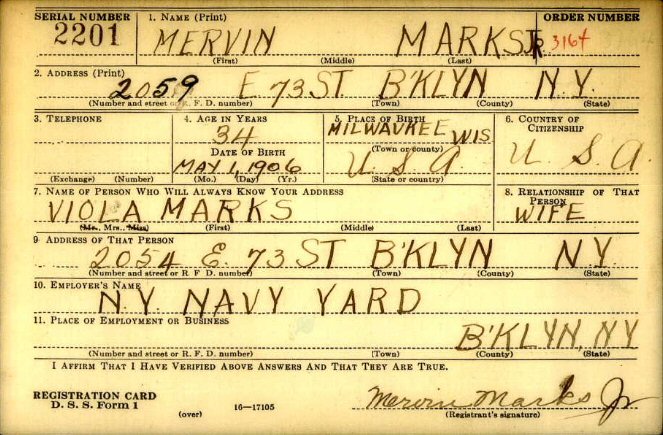 SERIAL NUMBER 1. NAME (Print) ORDER NUMBER
2201 MERVIN MARKS JR 3164
(First) (Middle) (Last)
2. ADDRESS (Print)
2059 E 73 ST B'KLYN N.Y.
(Number and street or R. F. D. number) (Town) (County) (State)
3. TELEPHONE 4. AGE IN YEARS 5. PLACE OF BIRTH 6. COUNTRY OF CITIZENSHIP
34 MILWAUKEE WIS
DATE OF BIRTH (Town or county)
MAY 1, 1906 U S A. U. S. A.
(Exchange) (Number) (Mo.) (Day) (Yr.) (State or country)
7. NAME OF PERSON WHO WILL ALWAYS KNOW YOUR ADDRESS 8. RELATIONSHIP OF THAT PERSON
VIOLA MARKS WIFE
(Mr., Mrs., Miss) (First) (Middle) (Last)
9 ADDRESS OF THAT PERSON
2054 E. 73 ST B'KLYN NY
(Number and street or R. F. D. number) (Town) (County) (State)
10. EMPLOYER'S NAME
N.Y. NAVY YARD
11. PLACE OF EMPLOYMENT OR BUSINESS
B'KLYN, NY
(Number and street or R. F. D. number) (Town) (County) (State)
I AFFIRM THAT I HAVE VERIFIED ABOVE ANSWERS AND THAT THEY ARE TRUE.
REGISTRATION CARD
D. S. S. Form 1 (over) 16—17105
Mervin Marks Jr
(Registrant's signature)